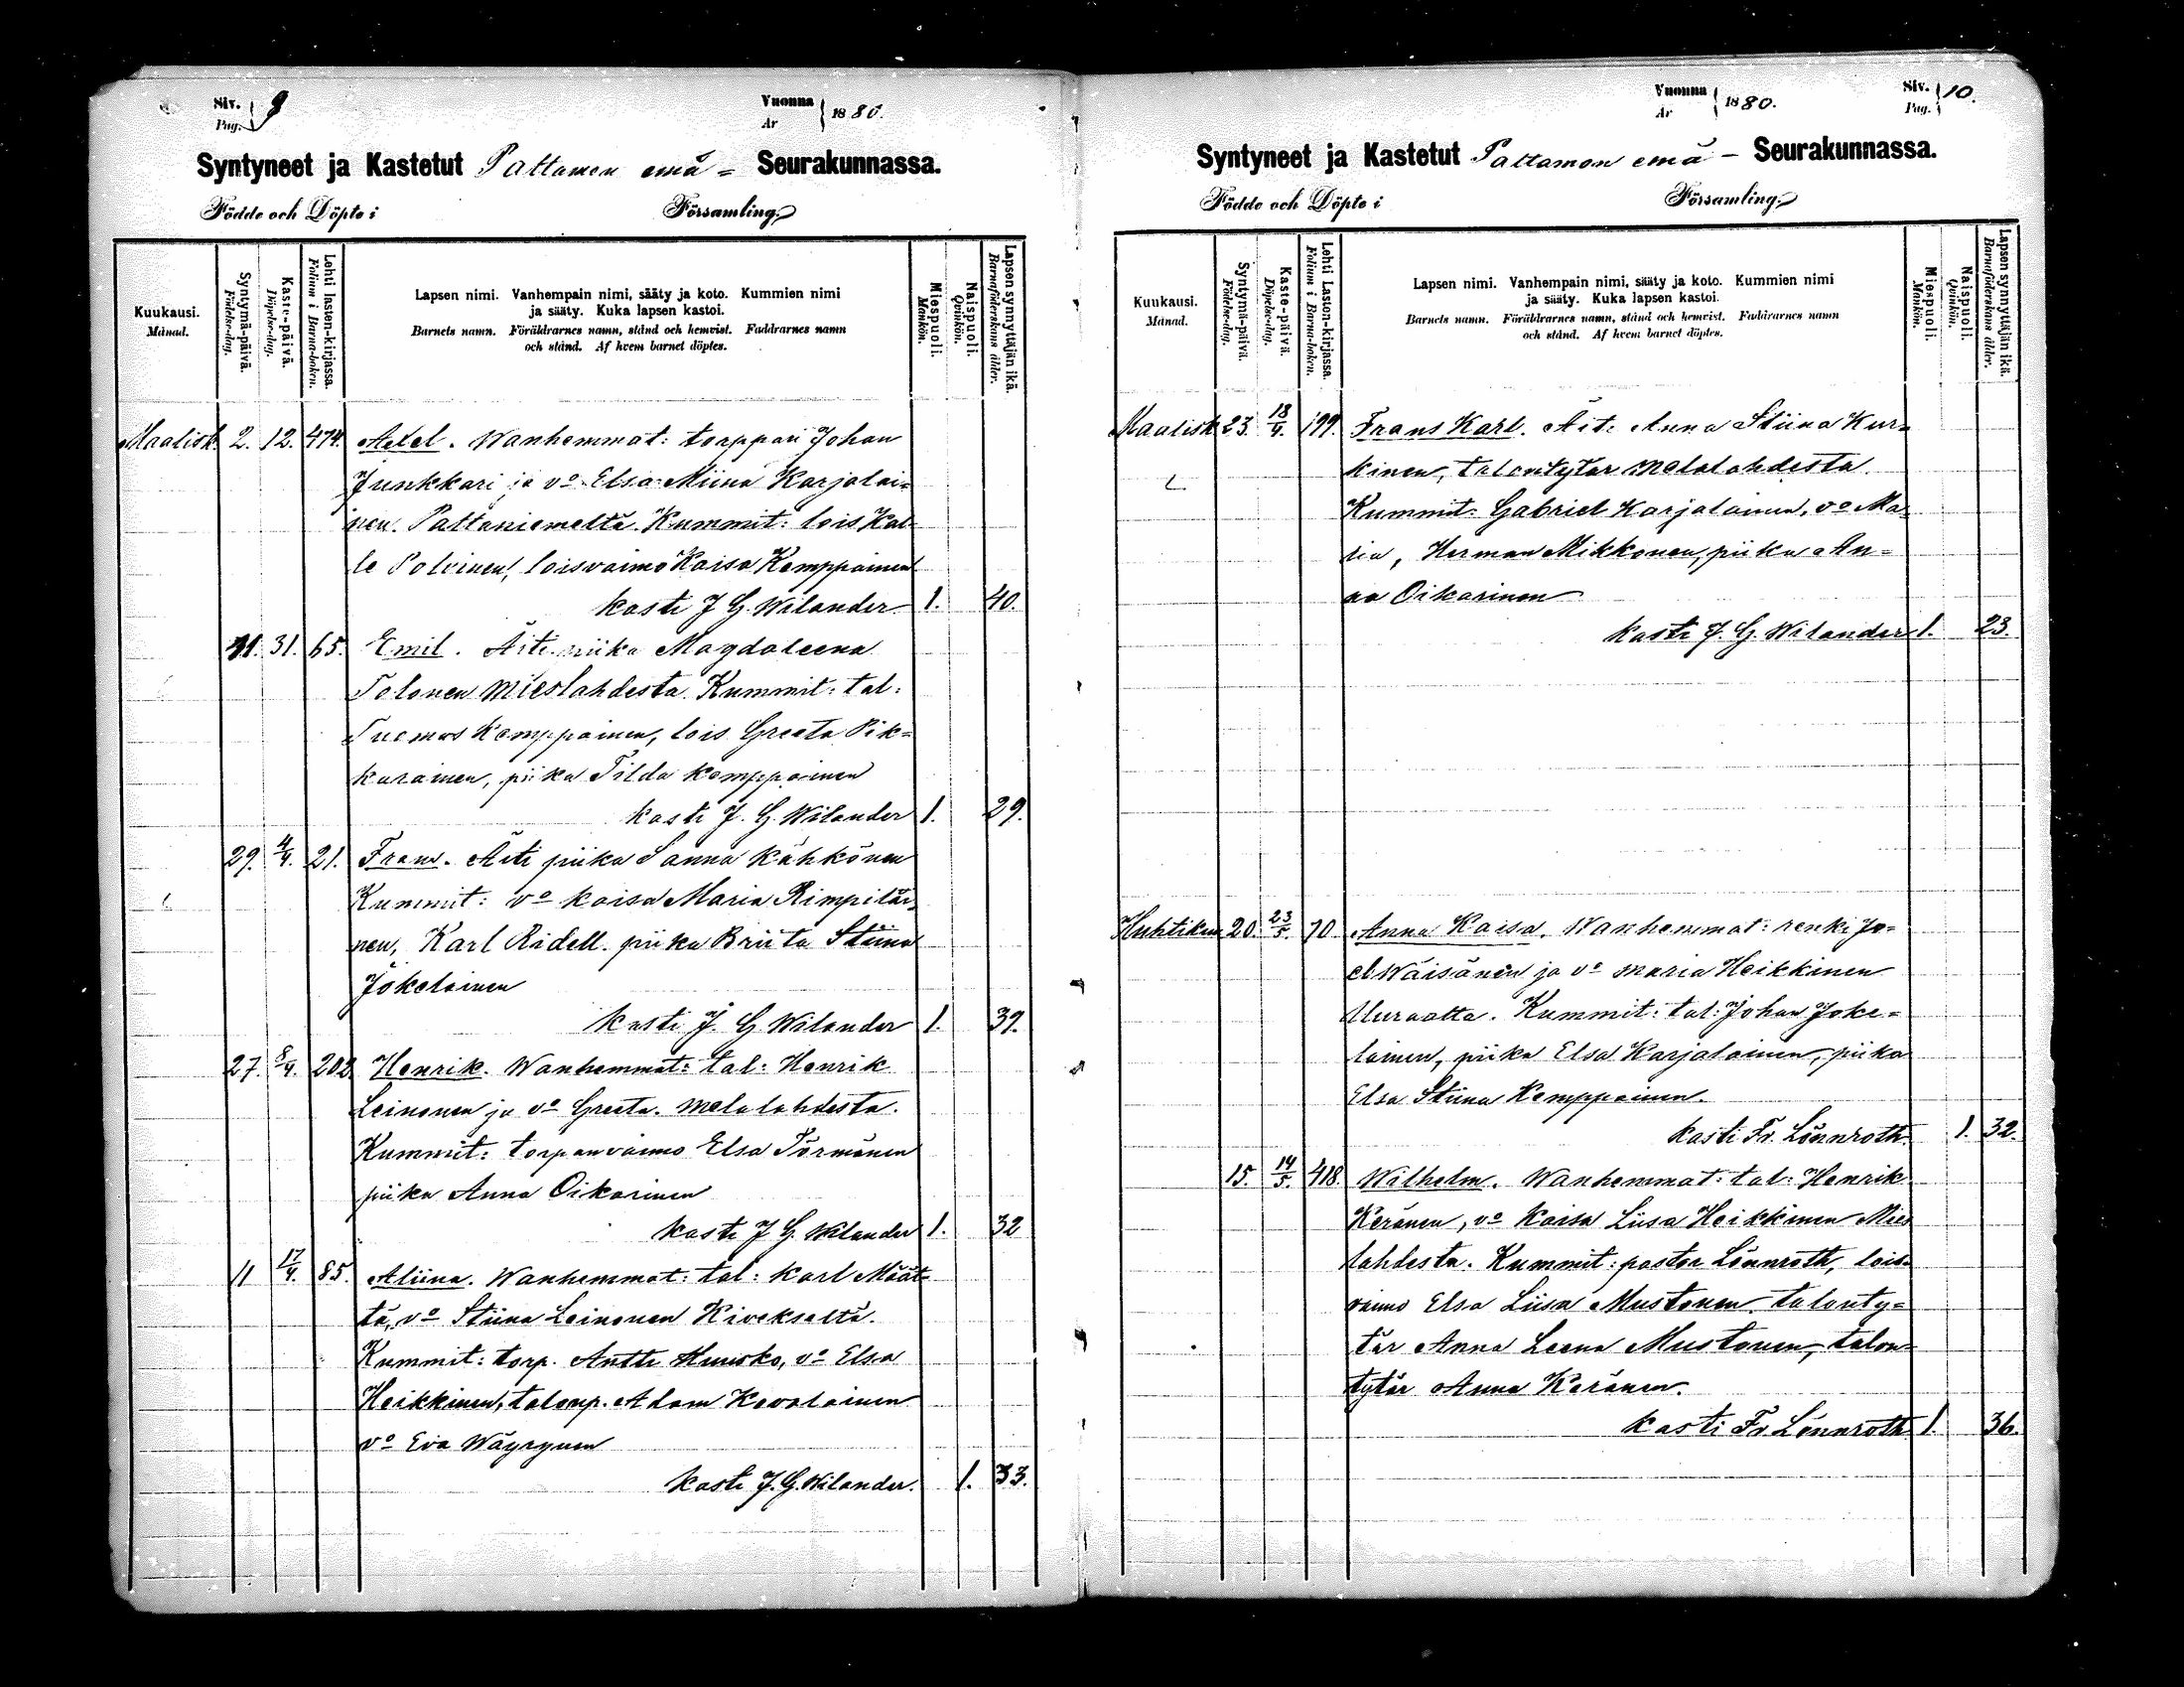 Siv. 9
Pag.
Vuonna
År 1880.
Syntyneet ja Kastetut Paltamon emä = Seurakunnassa.
Födde och Döpte i Församling.
Kuukausi.
Månad.
Syntymä-päivä.
Födelse-dag.
Kaste-päivä.
Döpelse-dag.
Lehti lasten-kirjassa.
Folium i Barna-boken.
Lapsen nimi. Vanhempain nimi, sääty ja koto. Kummien nimi
ja sääty. Kuka lapsen kastoi.
Barnets namn. Föräldrarnes namn, stånd och hemvist. Faddrarnes namn
och stånd. Af hvem barnet döptes.
Miespuoli.
Mankön.
Naispuoli.
Qvinkön.
Lapsen synnyttäjän ikä.
Barnaföderskans ålder.
Maalisk. 2. 12. 474. Axel. Wanhemmat: torppari Johan
Junkkari ja vo Elsa Miina Karjalai=
nen. Paltaniemeltä. Kummit: lois Kal=
le Polvinen, loisvaimo Kaisa Kemppainen
kasti J G. Wilander 1. 40.
31. 65. Emil. Äiti piika Magdaleena
Tolonen Mieslahdesta. Kummit: tal:
Tuomas Kemppainen, lois Greeta Pik=
karainen, piika Tilda Kemppainen
kasti J. G. Wilander 1. 29.
29. 4/4. 21. Frans. Äiti piika Sanna Kähkönen
Kummit: vo Kaisa Maria Rimpiläi=
nen, Karl Ridell. piika Briita Stiina
Jokelainen
kasti J. G Wilander 1. 39.
27. 8/4. 202. Henrik. Wanhemmat: tal: Henrik
Leinonen ja vo Greeta. Melalahdesta.
Kummit: torpanvaimo Elsa Törmänen
piika Anna Oikarinen
kasti J G. Wilander 1. 32
11 17/4. 85. Aliina. Wanhemmat: tal: Karl Määt=
tä, vo Stiina Leinonen Kivekseltä.
Kummit: torp. Antti Huusko, vo Elsa
Heikkinen, talonp. Adam Kovalainen
vo Eva Wäyrynen
kasti J. G. Wilander. 1. 33.
Vuonna
År 1880.
Siv. 10.
Pag.
Syntyneet ja Kastetut Paltamon emä - Seurakunnassa.
Födde och Döpte i Församling.
Kuukausi.
Månad.
Syntymä-päivä.
Födelse-dag.
Kaste-päivä.
Döpelse-dag.
Lehti Lasten-kirjassa.
Folium i Barna-boken.
Lapsen nimi. Vanhempain nimi, sääty ja koto. Kummien nimi
ja sääty. Kuka lapsen kastoi.
Barnets namn. Föräldrarnes namn, stånd och hemvist. Faddrarnes namn
och stånd. Af hvem barnet döptes.
Miespuoli.
Mankön.
Naispuoli.
Qvinkön.
Lapsen synnyttäjän ikä.
Barnaföderskans ålder.
Maalisk 23. 18/4. 199. Frans Karl. Äiti Anna Stiina Kur=
kinen, talontytär Melalahdesta.
Kummit: Gabriel Karjalainen, vo Ma=
ria, Herman Mikkonen, piika An=
na Oikarinen
kasti J. G. Wilander 1. 23.
Huhtikuu 20. 23/5. 70. Anna Kaisa. Wanhemmat: renki Jo=
el Wäisänen ja vo Maria Heikkinen
Uuraalta. Kummit: tal: Johan Joke=
lainen, piika Elsa Karjalainen, piika
Elsa Stiina Kemppainen.
kasti Fr. Lönnroth. 1. 32.
15. 14/5. 418. Wilhelm. Wanhemmat: tal: Henrik
Keränen, vo Kaisa Liisa Heikkinen Mies
lahdesta. Kummit: pastor Lönnroth, lois=
vaimo Elsa Liisa Mustonen, talonty=
tär Anna Leena Mustonen, talon=
tytär Anna Keränen.
kasti Fr. Lönnroth 1. 36.